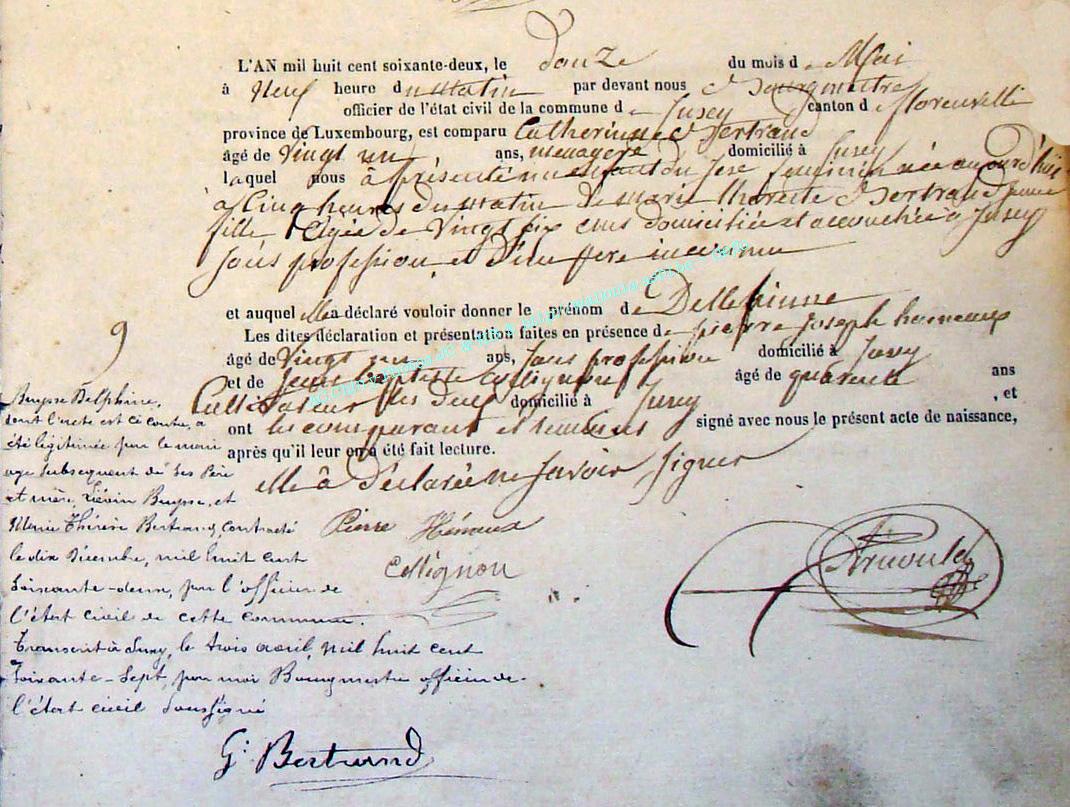 L'AN mil huit cent soixante-deux, le douze du mois de Mai
à Neuf heure du matin par devant nous Bourgmestre
officier de l'état civil de la commune de Jusey canton de florenville
province de Luxembourg, est comparu Catherine Bertrand
âgé de Vingt un ans, menagere domicilié à Jusey
laquel nous à présenté un enfant du sexe feminin née aujourd'hui
à Cinq heures du matin de marie therese Bertrand jeune
fille Agée de Vingt six ans domiciliée et accouchée à Jusey
sans profession et d'un pere inconnu
et auquel elle a déclaré vouloir donner le prénom de Delphinne
Les dites déclaration et présentation faites en présence de pierre Joseph
âgé de Vingt un ans, sans profession domicilié à Jusey
et de Jean Baptiste Collignon âgé de quarente ans
Cultivateur les deux domicilié à Jusey , et
ont les comparant et temoins signé avec nous le présent acte de naissance,
après qu'il leur en a été fait lecture.
elle à déclarée ne savoir signer
9
Buysse Delphine,
dont l'acte est ci contre, a
été légitimée par le mari
age subsequent de ses Père
et mère, Liévin Buysse, et
Marie Thérèse Bertrand, contracté
le dix Décembre, mil huit cent
soixante-deux, par l'officier de
l'état civil de cette commune.
Transcrit à, le trois avril, mil huit cent
soixante-sept, par moi Bourgmestre officier de
l'état civil soussigné
G. Bertrand
Pierre Hémeux
Collignon
Arnould